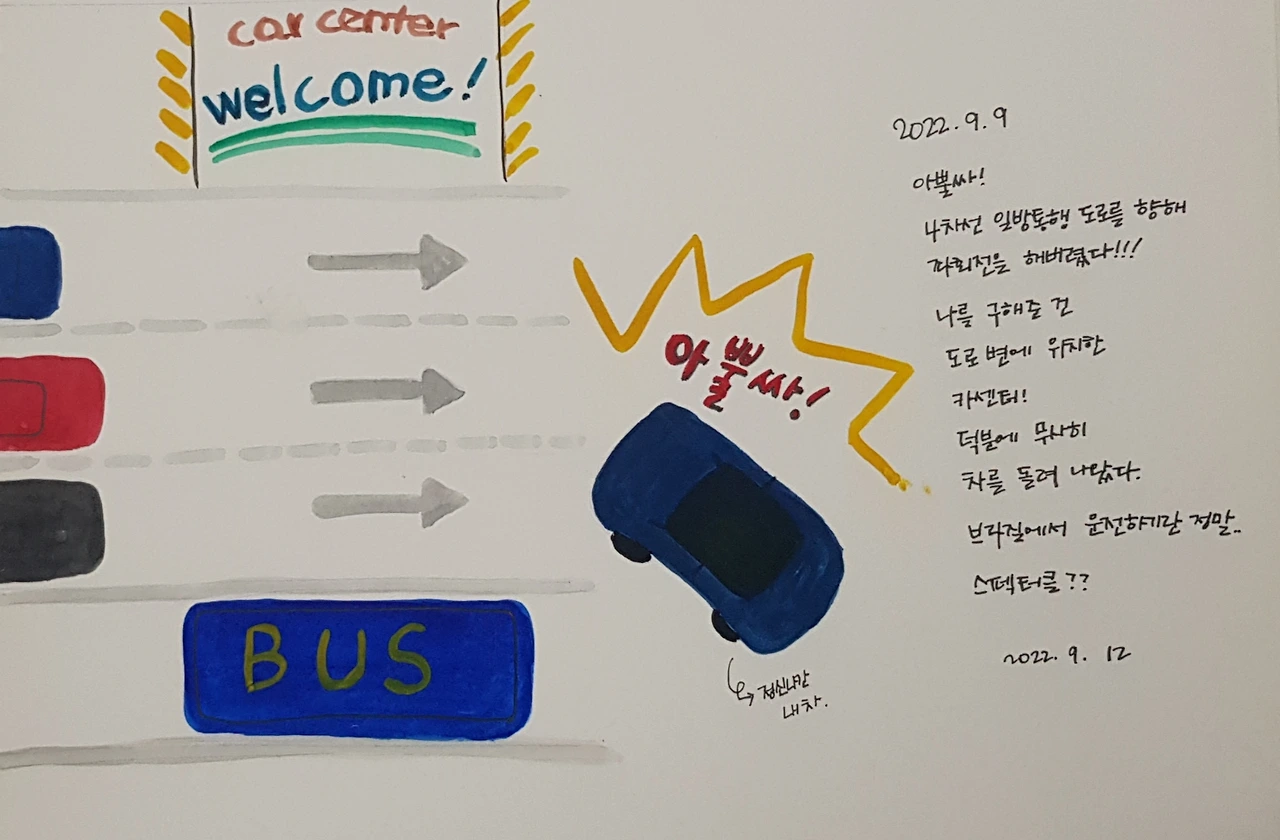 car center
welcome!
아뿔싸!
BUS
정신나간
내 차.
2022. 9. 9
아뿔싸!
4차선 일방통행 도로를 향해
좌회전을 해버렸다!!!
나를 구해준 건
도로변에 위치한
카센터!
덕분에 무사히
차를 돌려 나왔다.
브라질에서 운전하기란 정말..
스펙터클??
2022. 9. 12